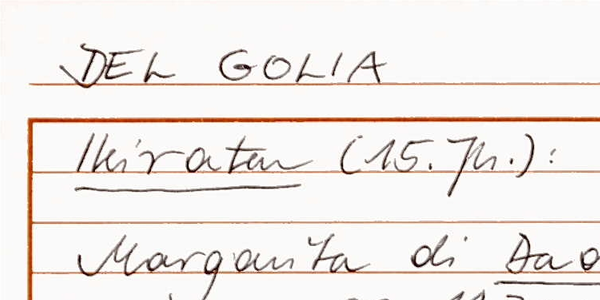 DEL GOLIA
Heiraten (15. Jh.):
Margarita di